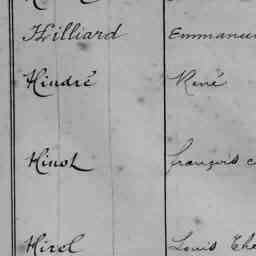 Hilliard Emmanue
Hindré René
Hinot françois
Hirel Louis